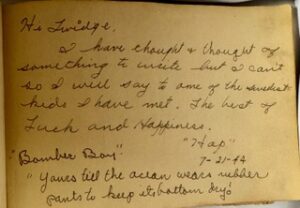 Hi Twidge,
I have thought & thought of
something to write but I can't
so I will say to one of the swellest
kids I have met. The best of
Luck and Happiness.
"Hap"
"Bomber Boy" 7-21-44
"Yours till the ocean wears rubber
pants to keep its bottom dry!